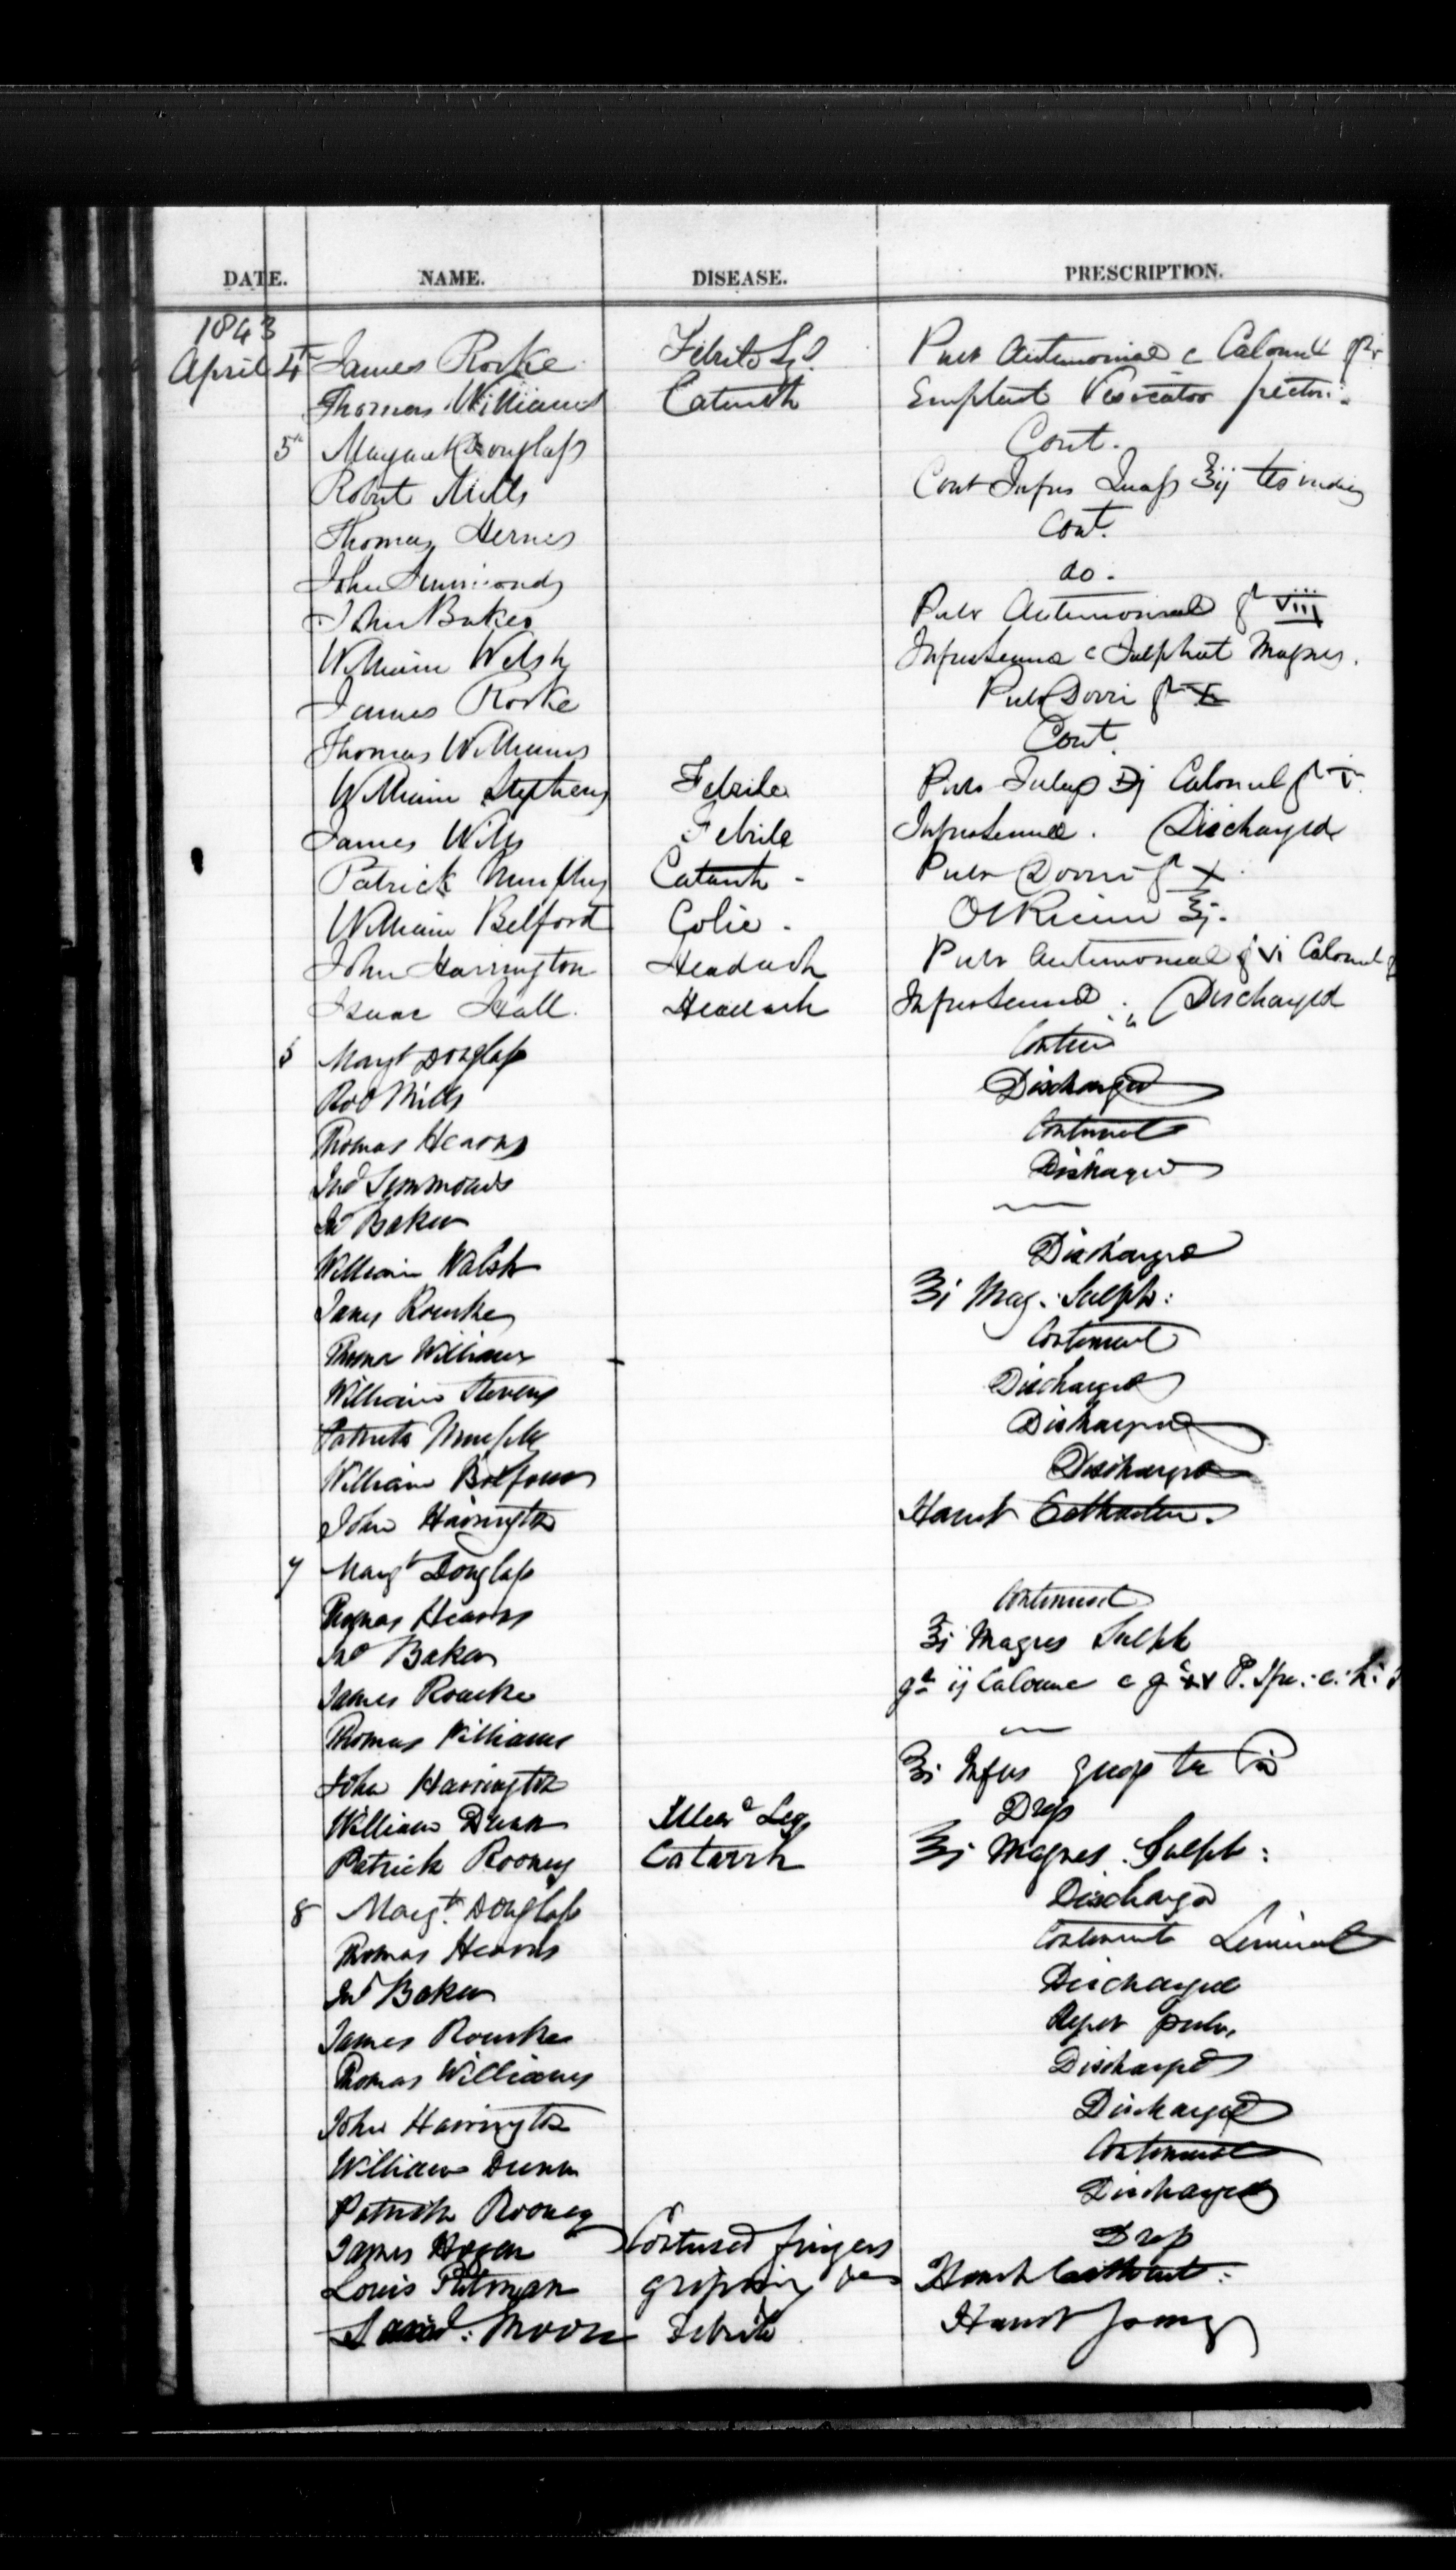 DATE. NAME. DISEASE. PRESCRIPTION.
1843
April 4th James Rorke Pulv Antimonial c Calomel gr v
Thomas Williams Catarrh Emplast Vesicator pectori.
5th Margaret Douglass Cont.
Robert Mills Cont Infus Quass ℥ij
Thomas Hernes Cont.
John Simmonds do.
John Baker Pulv Antimonial gr viii
William Welsh Infus Senna c Sulphat Magnes.
James Rorke Pulv Dovri gr x
Thomas Williams Cont.
William Stephens Febrile Pulv Julap ℈j Calomel gr v
James Wills Febrile Infus Senna. Discharged
Patrick Murphy Catarrh - Pulv Dovri gr x.
William Belford Colic - Ol Ricini ℥j.
John Harrington Headach Pulv Antimonial gr vi Calomel
Isaac Hall. Headach Infus Senna. Discharged
Margt Douglass
Rob Mills Discharged
Thomas Hearns Continued
Jno Simmonds Discharged
Jno Baker
William Walsh Discharged
James Rourke ℥j Mag: Sulph:
Thomas Williams Continued
William Stevens Discharged
Patrick Murphy Discharged
William Belford Discharged
John Harrington Haust Cathartic.
7 Margt Douglass
Thomas Hearns Continued
Jno Baker ℥j Magnes Sulph
James Rourke grs ij Calomel c
Thomas Williams
John Harrington ℥j Infus
William Dunn Leg Drsg
Patrick Rooney Catarrh ℥j Magnes. Sulph:
8 Margt. Douglass Discharged
Thomas Hearns Continued Liniment
Jno Baker Discharged
James Rourke Repet pulv.
Thomas Williams Discharged
John Harrington Discharged
William Dunn Continued
Patrick Rooney Discharged
James Hogan Contused fingers Drsg
Louis Putman griping Haust Cathart:
Moore Febrile Haust